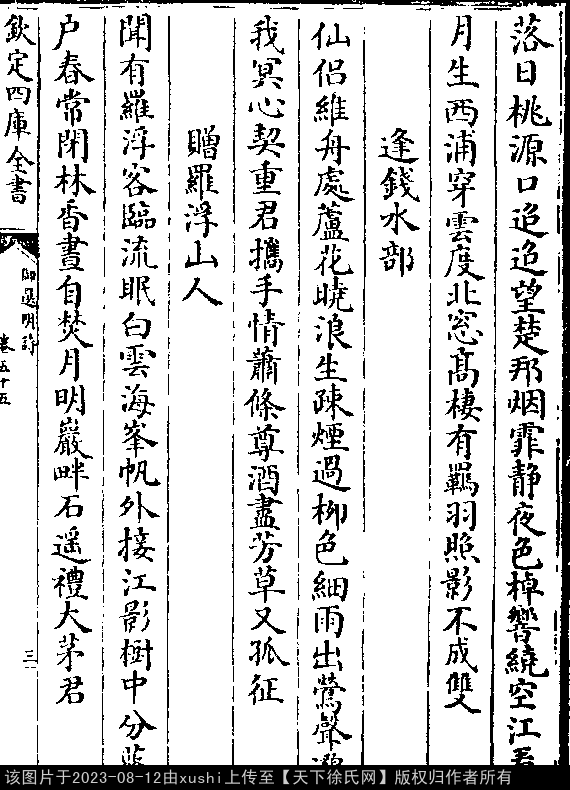 落日桃源口迢迢望楚邦烟霏静夜色棹響繞空江
月生西浦穿雲度北窓髙棲有羈羽照影不成雙
逢錢水部
仙侣維舟處蘆花曉浪生疎煙過栁色細雨出鶯聲
我冥心契重君攜手情蕭條尊酒盡芳草又孤征
贈羅浮山人
聞有羅浮客臨流眠白雲海峯帆外接江影樹中分
户春常閉林香晝自焚月明巖畔石遥禮大茅君
欽定四庫全書
御選明詩
卷五十五
三
该图片于2023-08-12由xushi上传至【天下徐氏网】版权归作者所有